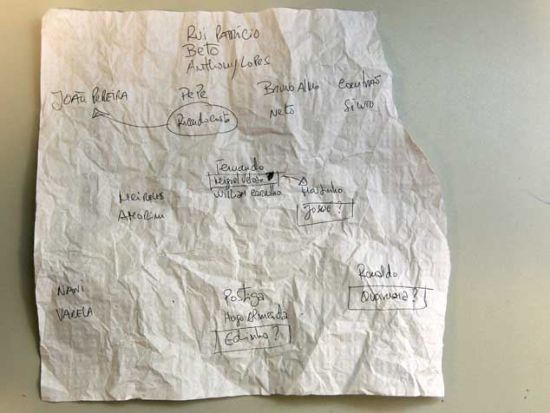 Rui Patrício
Beto
Anthony Lopes
João Pereira
Pepe
Bruno Alves
Coentrão
Ricardo Costa
Neto
Sílvio
Fernando
Miguel Veloso
William Carvalho
Meireles
Amorim
Martinho
Josué?
Nani
Varela
Postiga
Hugo Almeida
Edinho?
Ronaldo
Quaresma?